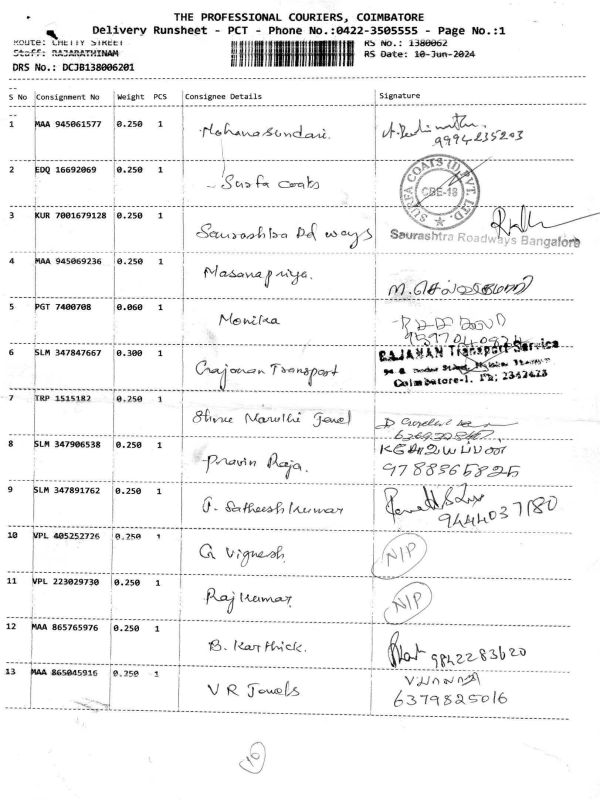 THE PROFESSIONAL COURIERS, COIMBATORE
Delivery Runsheet - PCT - Phone No.:0422-3505555 - Page No.:1
Route: CHETTY STREET RS No.: 1380062
Staff: RAJARATHINAM RS Date: 10-Jun-2024
DRS No.: DCJB138006201
S No Consignment No Weight PCS Consignee Details Signature
1 MAA 945061577 0.250 1 Mohanasundari.
9994235203
2 EDQ 16692069 0.250 1 Surfa coats SURFA COATS (I) PVT. LTD. CBE-18
3 KUR 7001679128 0.250 1 Saurashtra Rd ways
Saurashtra Roadways Bangalore
4 MAA 945069236 0.250 1 Masanapriya.
5 PGT 7400708 0.060 1 Monika
6 SLM 347847667 0.300 1 Gajanan Transport
RAJAMAN Transport Service
Coimbatore-1. Ph; 2342423
7 TRP 1515182 0.250 1 Shree Maruthi Jewel
8 SLM 347906538 0.250 1 Pravin Raja.
9788365825
9 SLM 347891762 0.250 1 P. Satheesh kumar
9444037180
10 VPL 405252726 0.250 1 G Vignesh N/P
11 VPL 223029730 0.250 1 Raj kumar N/P
12 MAA 865765976 0.250 1 B. Karthick. 9842283620
13 MAA 865045916 0.250 1 V R Jewels
6379825016
10